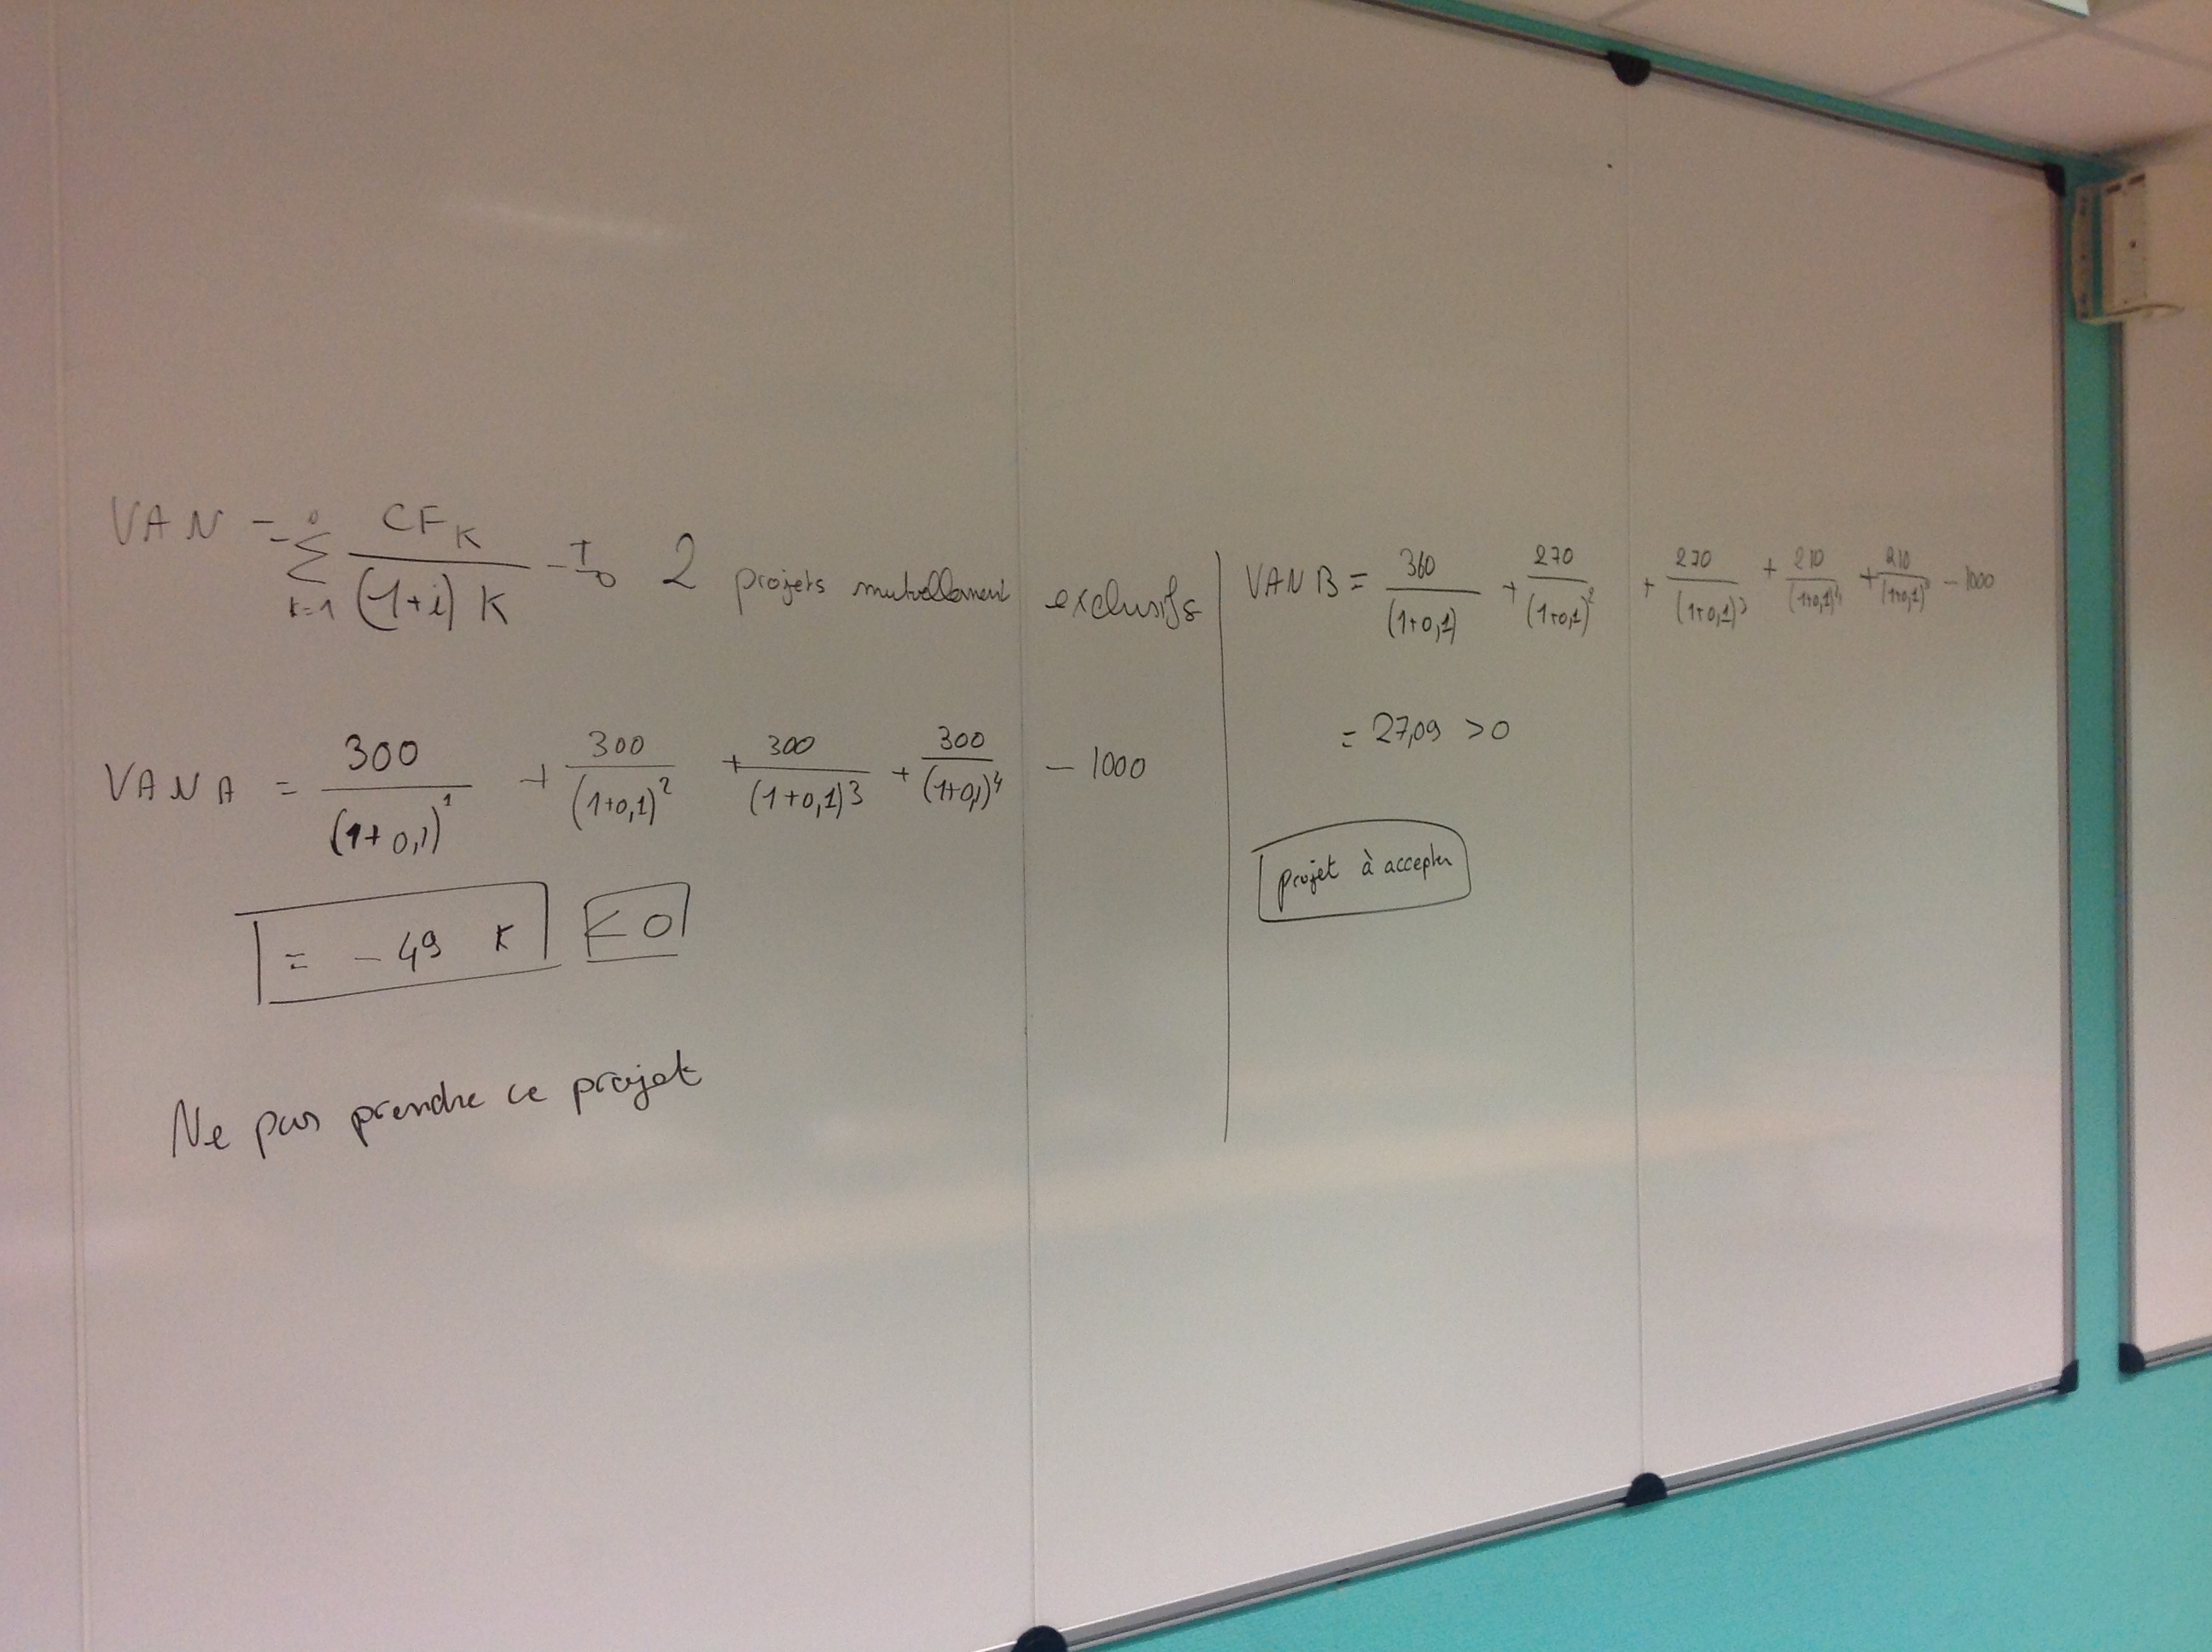 VAN = Σ k=1 CF K / (1+i) K - I0 2 projets mutuellement exclusifs
VAN A = 300 / (1+0,1)^1 + 300 / (1+0,1)^2 + 300 / (1+0,1)^3 + 300 / (1+0,1)^4 - 1000
= - 49 K < 0
Ne pas prendre ce projet
VAN B = 360 / (1+0,1) + 270 / (1+0,1)^2 + 230 / (1+0,1)^3 + 210 / (1+0,1)^4 + 210 / (1+0,1) - 1000
= 27,09 > 0
projet à accepter